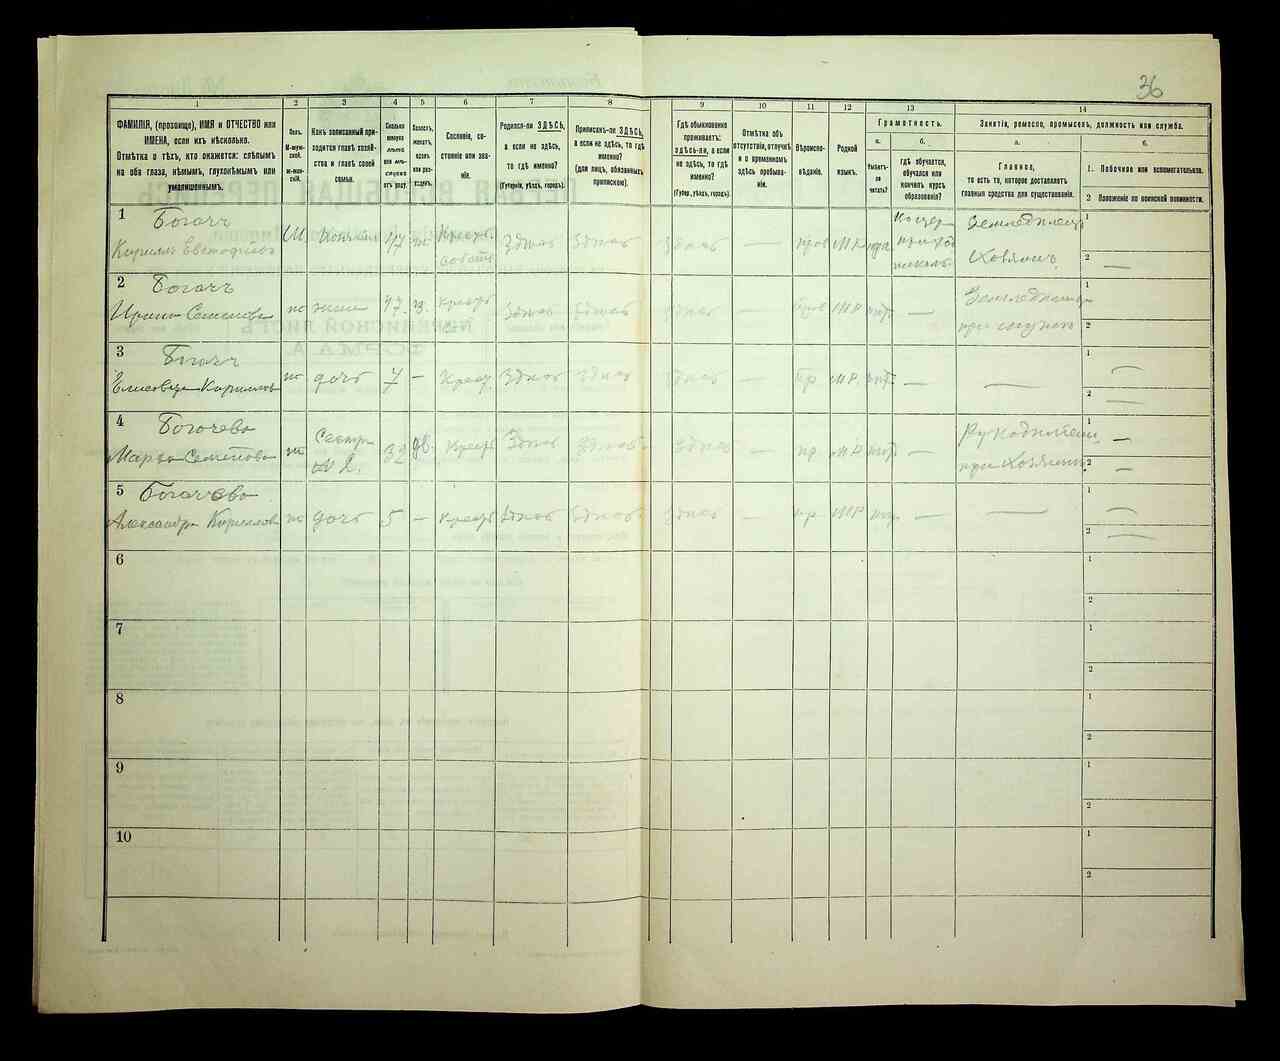 36
1 2 3 4 5 6 7 8 9 10 11 12 13 14
ФАМИЛІЯ, (прозвище), ИМЯ и ОТЧЕСТВО или
ИМЕНА, если ихъ нѣсколько.
Отмѣтка о тѣхъ, кто окажется: слѣпымъ
на оба глаза, нѣмымъ, глухонѣмымъ или
умалишеннымъ.
Полъ.
М-муж-
ской.
Ж-жен-
скій.
Какъ записанный при-
ходится главѣ хозяй-
ства и главѣ своей
семьи.
Сколько
минуло
лѣтъ
или мѣ-
сяцевъ
отъ роду.
Холостъ,
женатъ,
вдовъ
или раз-
веденъ.
Сословіе, со-
стояніе или зва-
ніе.
Родился-ли ЗДѢСЬ,
а если не здѣсь,
то гдѣ именно?
(Губернія, уѣздъ, городъ).
Приписанъ-ли ЗДѢСЬ,
а если не здѣсь, то гдѣ
именно?
(для лицъ, обязанныхъ
припискою).
Гдѣ обыкновенно
проживаетъ:
здѣсь-ли, а если
не здѣсь, то гдѣ
именно?
(Губер., уѣздъ, городъ).
Отмѣтка объ
отсутствіи, отлучкѣ
и о временномъ
здѣсь пребыва-
ніи.
Вѣроиспо-
вѣданіе.
Родной
языкъ.
Грамотность.
а.
Умѣетъ-
ли
читать?
б.
гдѣ обучается,
обучался или
кончилъ курсъ
образованія?
Занятіе, ремесло, промыселъ, должность или служба.
а.
Главное,
то есть то, которое доставляетъ
главныя средства для существованія.
б.
1. Побочное или вспомогательное.
2 Положеніе по воинской повинности.
1 Богачъ
Кириллъ М 47 Крест. Здѣсь Здѣсь Здѣсь — прав МР да
Хозяинъ 2 —
2 Богачъ
Ирина Семенова ж жена 47 з. крест Здѣсь Здѣсь Здѣсь — прав МР нѣт —
3 Богачъ
Елисавета Кириллов ж дочь 7 — Крест Здѣсь Здѣсь Здѣсь — пр МР нѣт — —
4 Богачева
Марья Семенова ж Сестра 32 дѣв. Крест Здѣсь Здѣсь Здѣсь — пр. МР нѣт —
5 Богачева
Александра Кириллов ж дочь 5 — Крест Здѣсь Здѣсь Здѣсь — пр МР нѣт — —
6 1
2
7 1
2
8 1
2
9 1
2
10 1
2